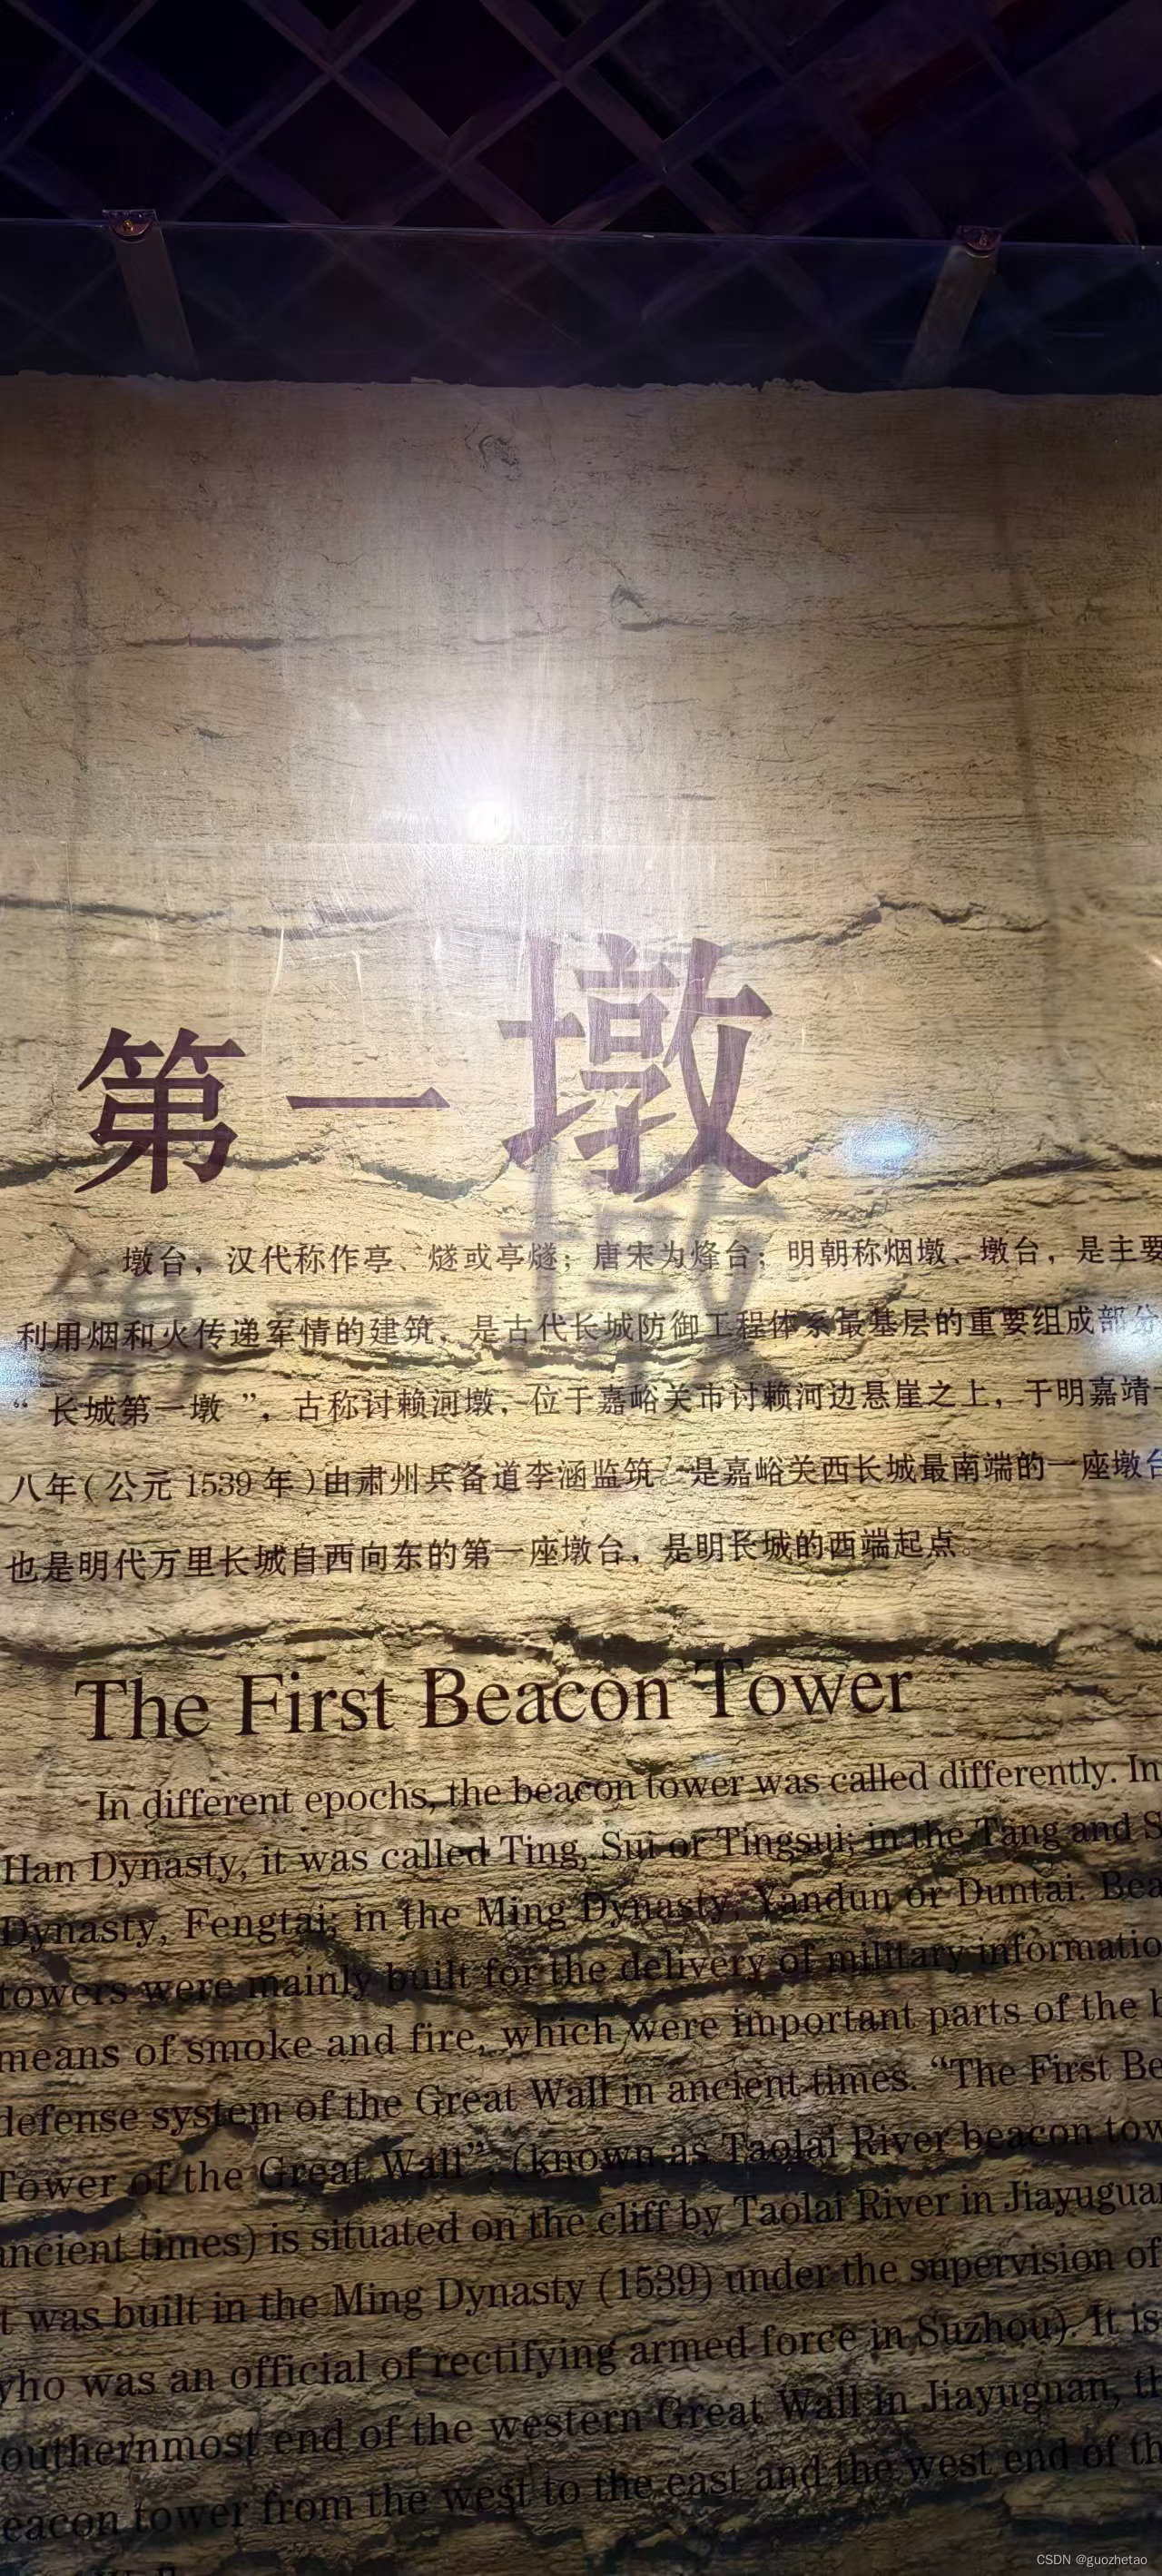 第一墩
墩台，汉代称作亭、燧或亭燧；唐宋为烽台；明朝称烟墩、墩台，是主要
利用烟和火传递军情的建筑，是古代长城防御工程体系最基层的重要组成部分
“长城第一墩”，古称讨赖河墩，位于嘉峪关市讨赖河边悬崖之上，于明嘉靖十
八年(公元1539年)由肃州兵备道李涵监筑，是嘉峪关西长城最南端的一座墩台
也是明代万里长城自西向东的第一座墩台，是明长城的西端起点。
The First Beacon Tower
In different epochs, the beacon tower was called differently. In
Han Dynasty, it was called Ting, Sui or Tingsui; in the Tang and S
Dynasty, Fengtai; in the Ming Dynasty, Yandun or Duntai. Bea
towers were mainly built for the delivery of military informatio
means of smoke and fire, which were important parts of the b
defense system of the Great Wall in ancient times. “The First Be
Tower of the Great Wall”, (known as Taolai River beacon tow
ancient times) is situated on the cliff by Taolai River in Jiayugua
t was built in the Ming Dynasty (1539) under the supervision of
who was an official of rectifying armed force in Suzhou). It is
outhernmost end of the western Great Wall in Jiayuguan, th
eacon tower from the west to the east and the west end of th
CSDN @guozhetao